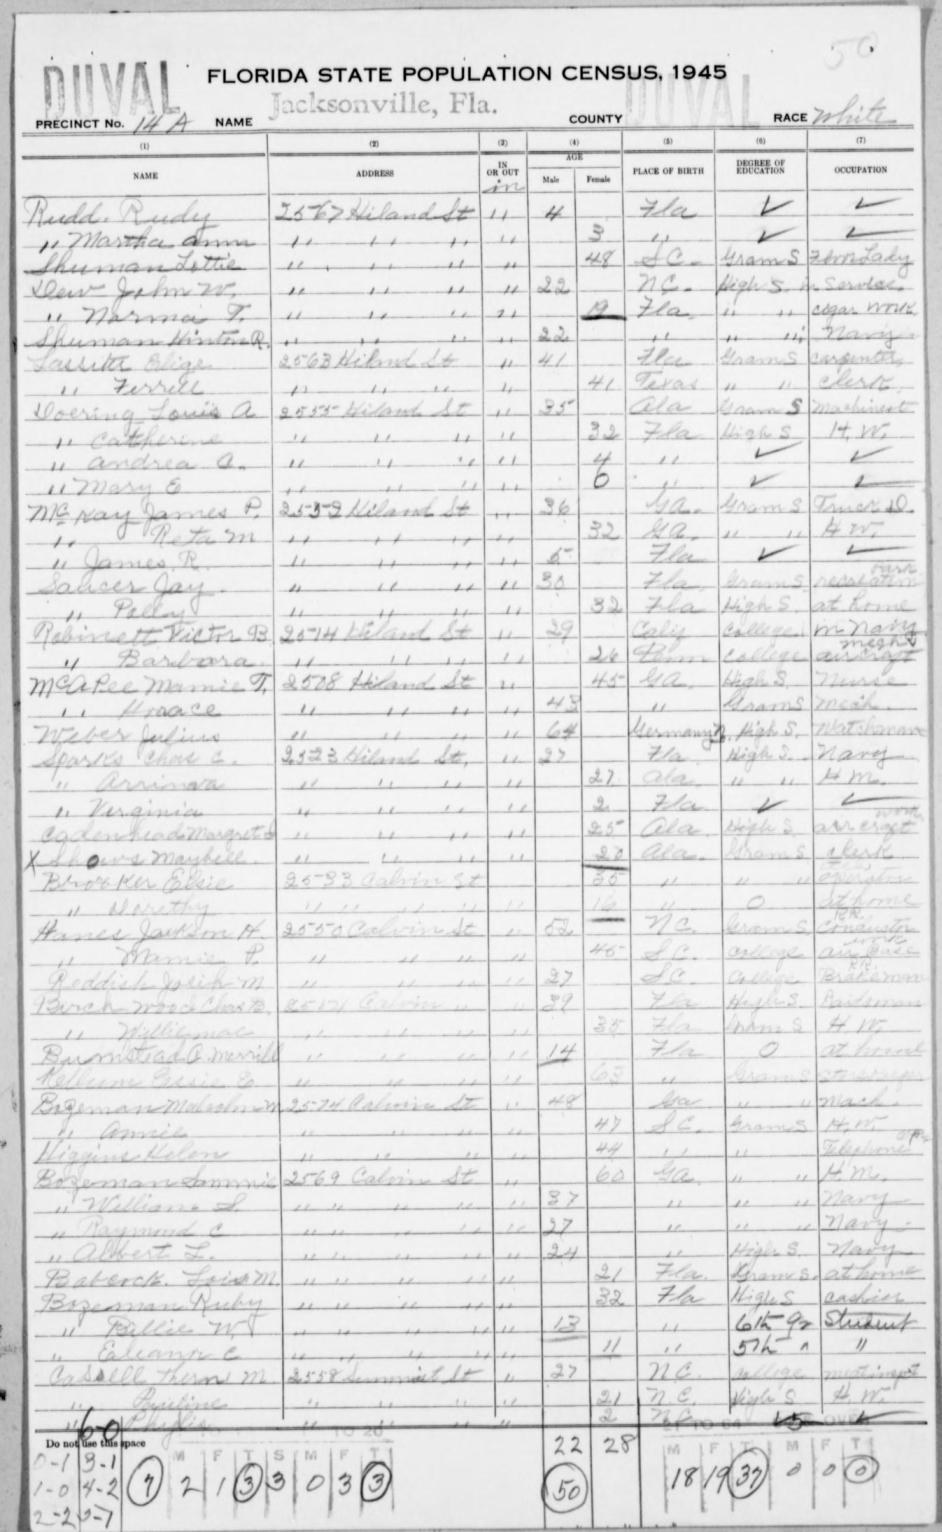 50
DUVAL DUVAL
FLORIDA STATE POPULATION CENSUS, 1945
Jacksonville, Fla.
PRECINCT No. 14 A NAME COUNTY RACE White
(1) (2) (3) (4) (5) (6) (7)
NAME ADDRESS IN OR OUT AGE Male Female PLACE OF BIRTH DEGREE OF EDUCATION OCCUPATION
in
Rudd. Rudy 2567 Hiland St " 4 Fla ✓ ✓
" Martha Ann " " " " 3 " ✓ ✓
Shuman Lottie " " " " 48 S C. Gram S Lady
Dew John W. " " " " 22 N C. High S. in Service
" Norma T. " " " " 19 Fla. " " cegar work
Shuman Hinton R. " " " " 22 " " " Navy
Elige 2563 Hiland St " 41 Fla Gram S carpenter
" Ferrell " " " " 41 Texas " " clerk
Doering Louis A 2555 Hiland St " 35 Ala Gram S Machinest
" Catherine " " " " 32 Fla High S H. W.
" Andrea A. " " " " 4 " ✓ ✓
" Mary E " " " " 6 " ✓ ✓
McKay James P. Hiland St " 36 GA. Gram S Truck D.
" Reta M " " " " 32 GA. " " H W.
" James R. " " " " 5 Fla ✓ ✓
Saucer Jay " " " " 30 Fla. Gram S recreation park
" Polly " " " " 32 Fla High S. at home
Robinett Victor B 2514 Hiland St " 29 Calif College in Navy
" Barbara " " " " 26 Penn College aircraft mech
McAPee Mamie T. 2508 Hiland St " 45 GA. High S. Nurse
" Horace " " " " 43 " Gram S mech.
Weber Julius " " " " 64 Germany High S. Watchman
Sparks Chas C. 2523 Hiland St. " 27 Fla High S. Navy
" " " " " 27 Ala. " " H W.
" Virginia " " " " 2 Fla ✓ ✓
Margret " " " " 25 Ala. High S. air craft work
X Shows Maybell " " " " 20 Ala. Gram S clerk
Brooker Elsie 2533 Calvin St 35 " " "
" Dorethy " " " " 16 " 0 at home
Hanes Jackson H. 2550 Calvin St " 52 N C. Gram S R.R. Conductor
" Mamie P. " " " " 45 S C. College air Base work
Reddish M " " " " 27 S C. College R.R. Brakeman
Birchwood Chas B. Calvin " " 39 Fla High S.
" Williemae " " " " 35 Fla Gram S H W.
Bumstead A. Merrill " " " " 14 Fla 0 at home
Kellum Essie E " " " " 63 " Gram S
Bozeman Malcolm M 2574 Calvin St " 48 Ga " " Mach.
" Annie " " " " 47 S C. Gram S H. W.
Higgins Helen " " " " 44 " " " Telephone
Bozeman Sammie 2569 Calvin St " 60 GA. " " H. W.
" William S. " " " " 37 " " " Navy
" Raymond C " " " " 27 " " " Navy
" Albert L. " " " " 24 " High S. Navy
Babcock. Lois M. " " " " 21 Fla. Gram S. at home
Bozeman Ruby " " " " 32 Fla High S cashier
" Billie W. " " " " 13 " 6th Gr Student
" Eleanor C " " " " 11 " 5th " "
Casell M 2558 Summit St " 27 N C. College
" Pauline " " " " 21 N C. High S H. W.
" Phylis " " " " 2 N C ✓ ✓
Do not use this space
6-0
0-1 3-1
1-0 4-2
2-2 5-7
M F T S M F T
7 2 1 3 3 0 3 3
22 28
50
21 TO 64 OVER
M F T M F T
18 19 37 0 0 0